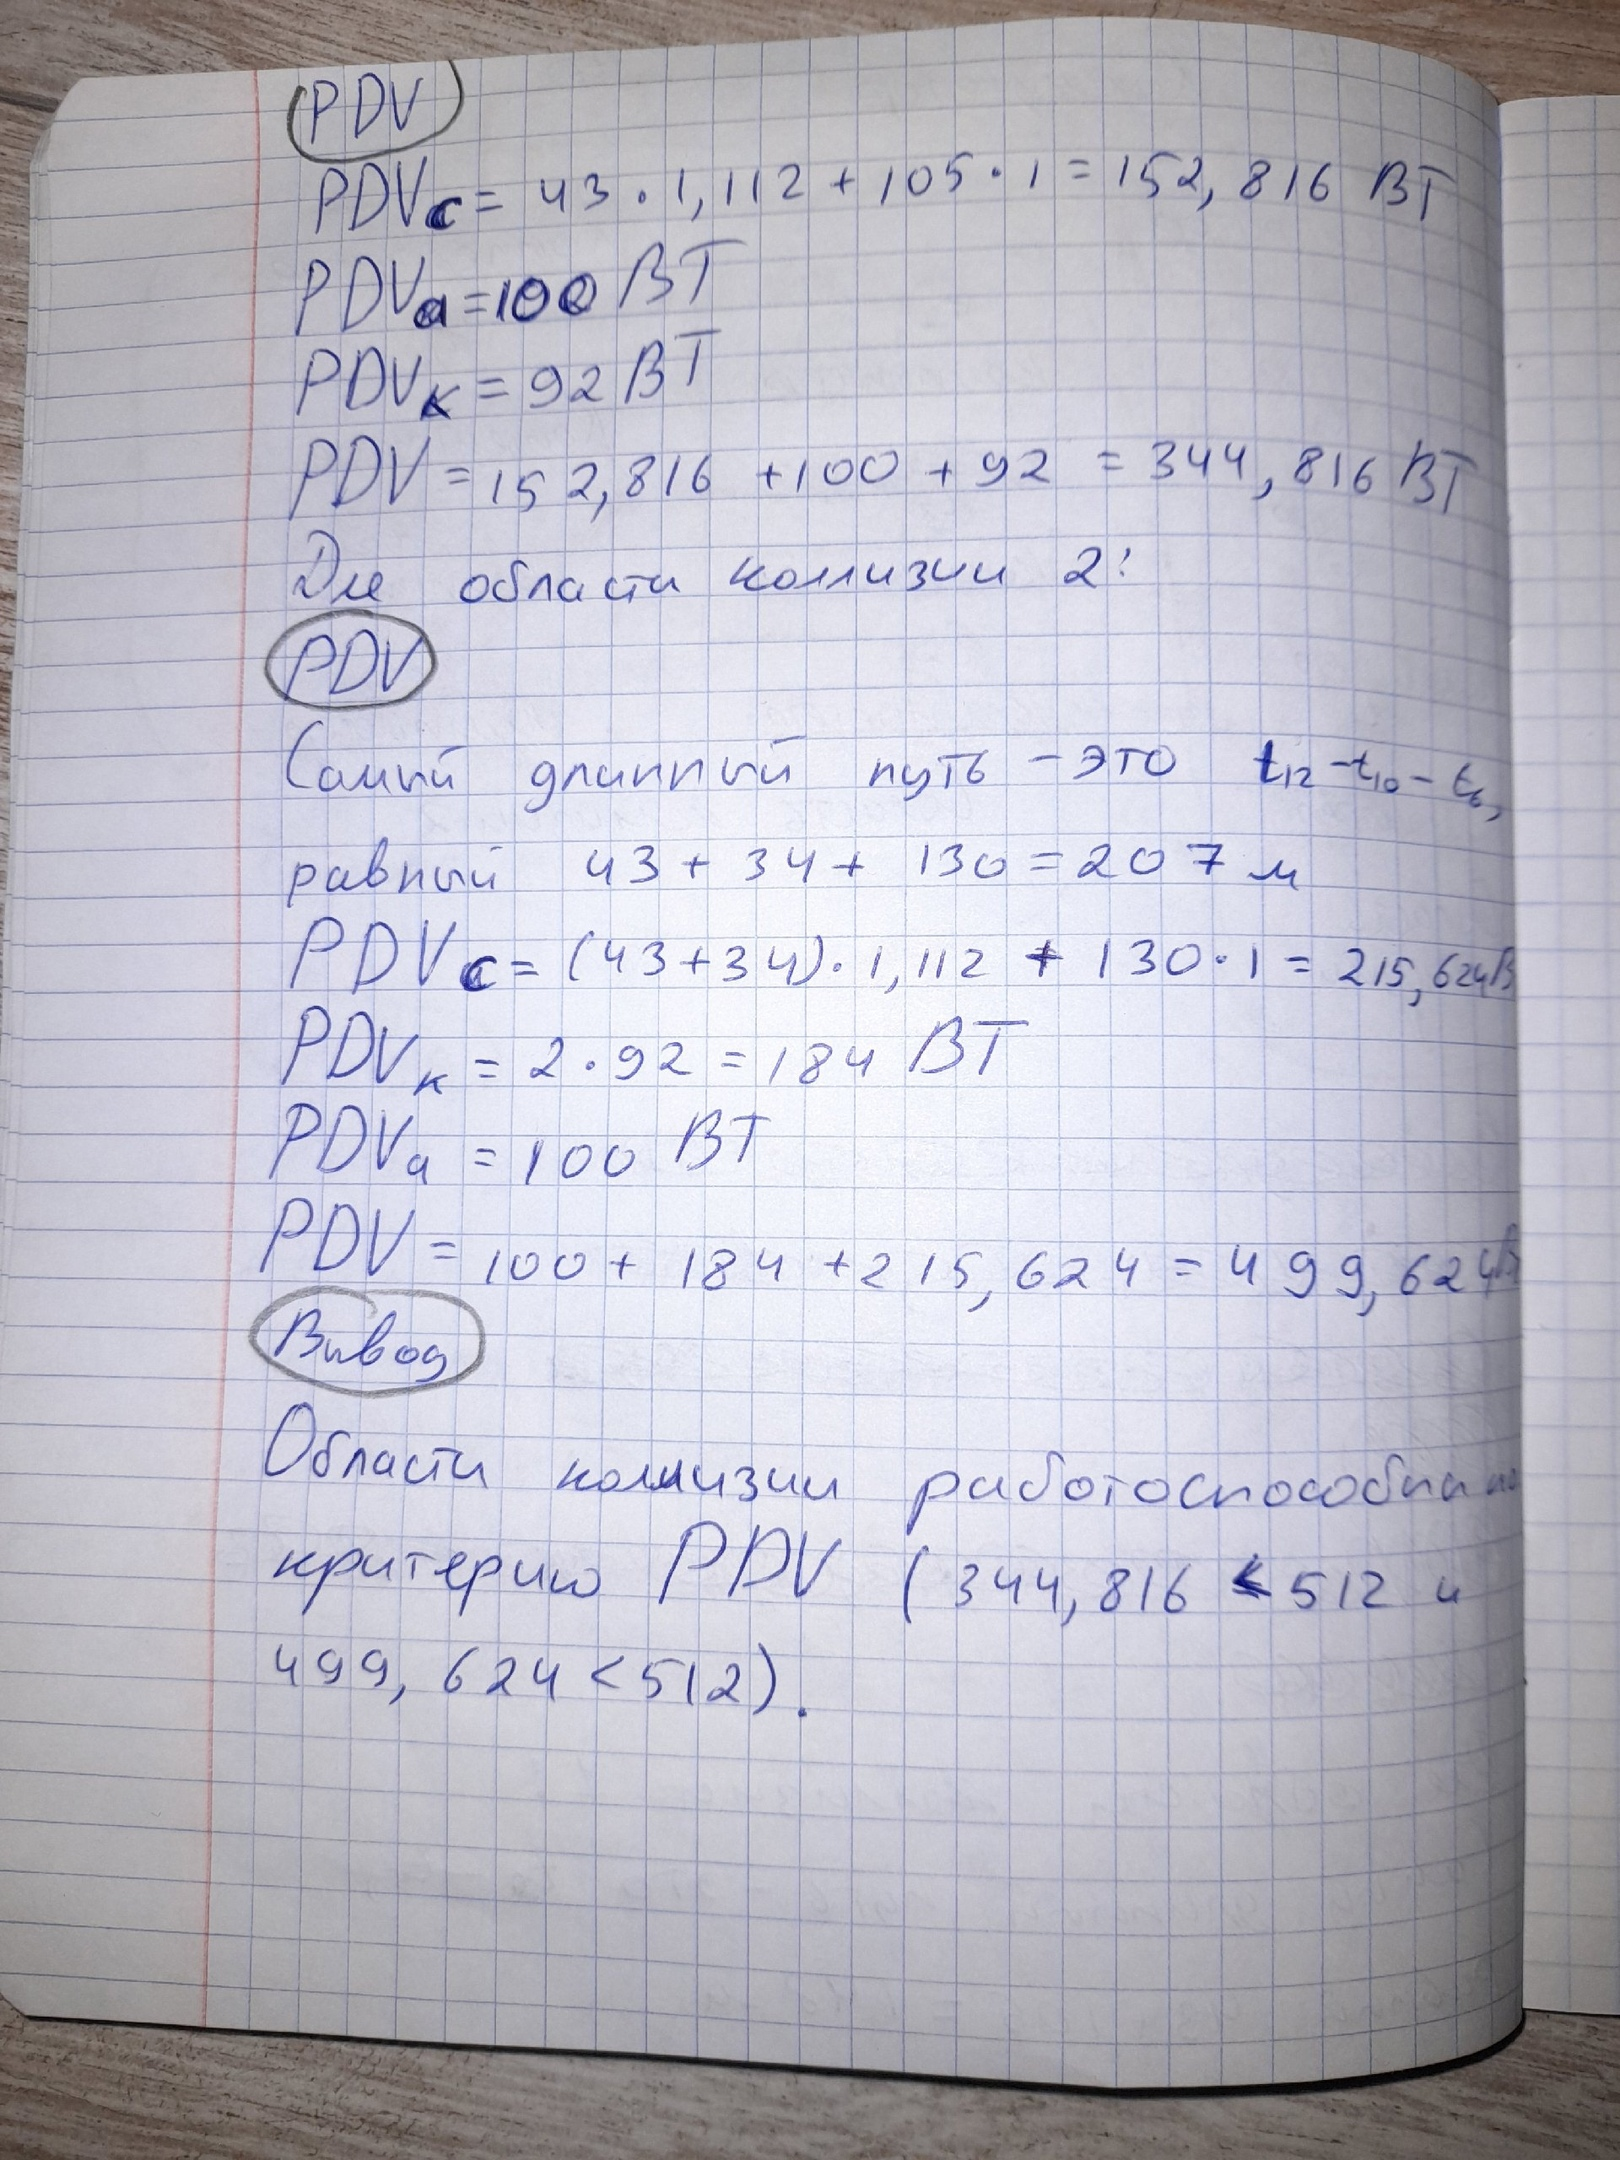 PDV
PDVс = 43 · 1,112 + 105 · 1 = 152,816 ВТ
PDVа = 100 ВТ
PDVк = 92 ВТ
PDV = 152,816 + 100 + 92 = 344,816 ВТ
Для области коллизии 2:
PDV
Самый длинный путь – это t12 – t10 – t6,
равный 43 + 34 + 130 = 207 м
PDVс = (43+34) · 1,112 + 130 · 1 = 215,624 В
PDVк = 2 · 92 = 184 ВТ
PDVа = 100 ВТ
PDV = 100 + 184 + 215,624 = 499,624 ВТ
Вывод
Области коллизии работоспособны по
критерию PDV (344,816 < 512 и
499,624 < 512).